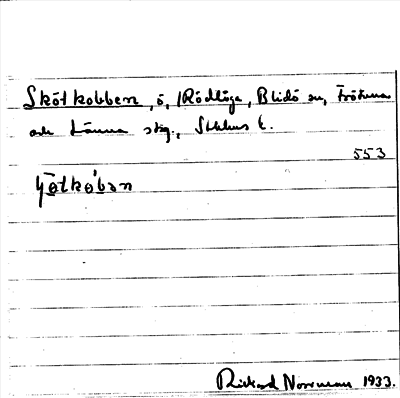 Skötkobben, ö, Rödlöga, Blidö sn, Frötuna
och Länna skg., Sthlms l.
553
Rickard Norrman 1933.